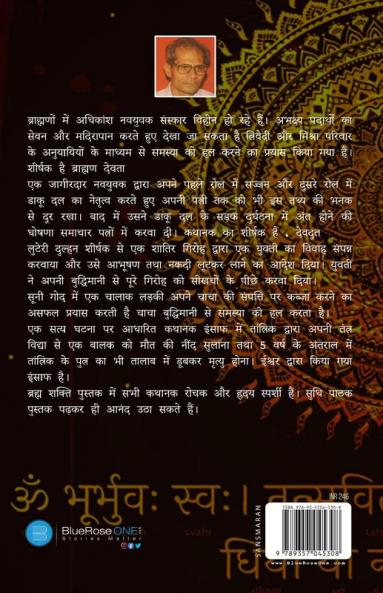 ब्राह्मणों में अधिकांश नवयुवक संस्कार विहीन हो रहे हैं। अभक्ष्य पदार्थों का
सेवन और मदिरापान करते हुए देखा जा सकता है त्रिवेदी और मिश्रा परिवार
के अनुयायियों के माध्यम से समस्या को हल करने का प्रयास किया गया है।
शीर्षक है ब्राह्मण देवता
एक जागीरदार नवयुवक द्वारा अपने पहले रोल में सज्जन और दुसरे रोल में
डाकू दल का नेतृत्व करते हुए अपनी पत्नी तक को भी इस तथ्य की भनक
से दूर रखा। बाद में उसने डाकू दल के सड़क दुर्घटना में अंत होने की
घोषणा समाचार पत्रों में करवा दी। कथानक का शीर्षक है . देवदूत
लुटेरी दुल्हन शीर्षक से एक शातिर गिरोह द्वारा एक युवती का विवाह संपन्न
करवाया और उसे आभूषण तथा नकदी लूटकर लाने का आदेश दिया। युवती
ने अपनी बुद्धिमानी से पूरे गिरोह को सीखचों के पीछे करवा दिया।
सूनी गोद में एक चालाक लड़की अपने चाचा की संपत्ति पर कब्जा करने का
असफल प्रयास करती है चाचा बुद्धिमानी से समस्या को हल करता है।
एक सत्य घटना पर आधारित कथानक इंसाफ में तांत्रिक द्वारा अपनी तंत्र
विद्या से एक बालक को मौत की नींद सुलाना तथा 5 वर्ष के अंतराल में
तांत्रिक के पुत्र का भी तालाब में डूबकर मृत्यु होना। ईश्वर द्वारा किया गया
इंसाफ है।
ब्रह्म शक्ति पुस्तक में सभी कथानक रोचक और हृदय स्पर्शी हैं। सुधि पाठक
पुस्तक पढ़कर ही आनंद उठा सकते हैं।
ॐ भूर्भुवः स्वः।
BlueRose ONE
Stories Matter
SANSMARAN
INR 246
9 789357 045308
www.BlueRoseOne.com